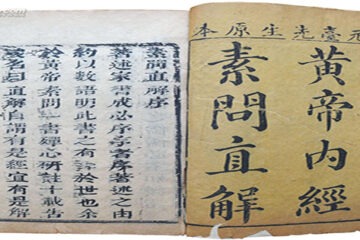 元臺先生原本
黃帝內經
素問直解
素問直解序
著述家書成必序序書著述之由
約以數語明此書之有於世也余
於黃帝素問一書殫心研註十載告
名曰直解自謂有是經宜有是解